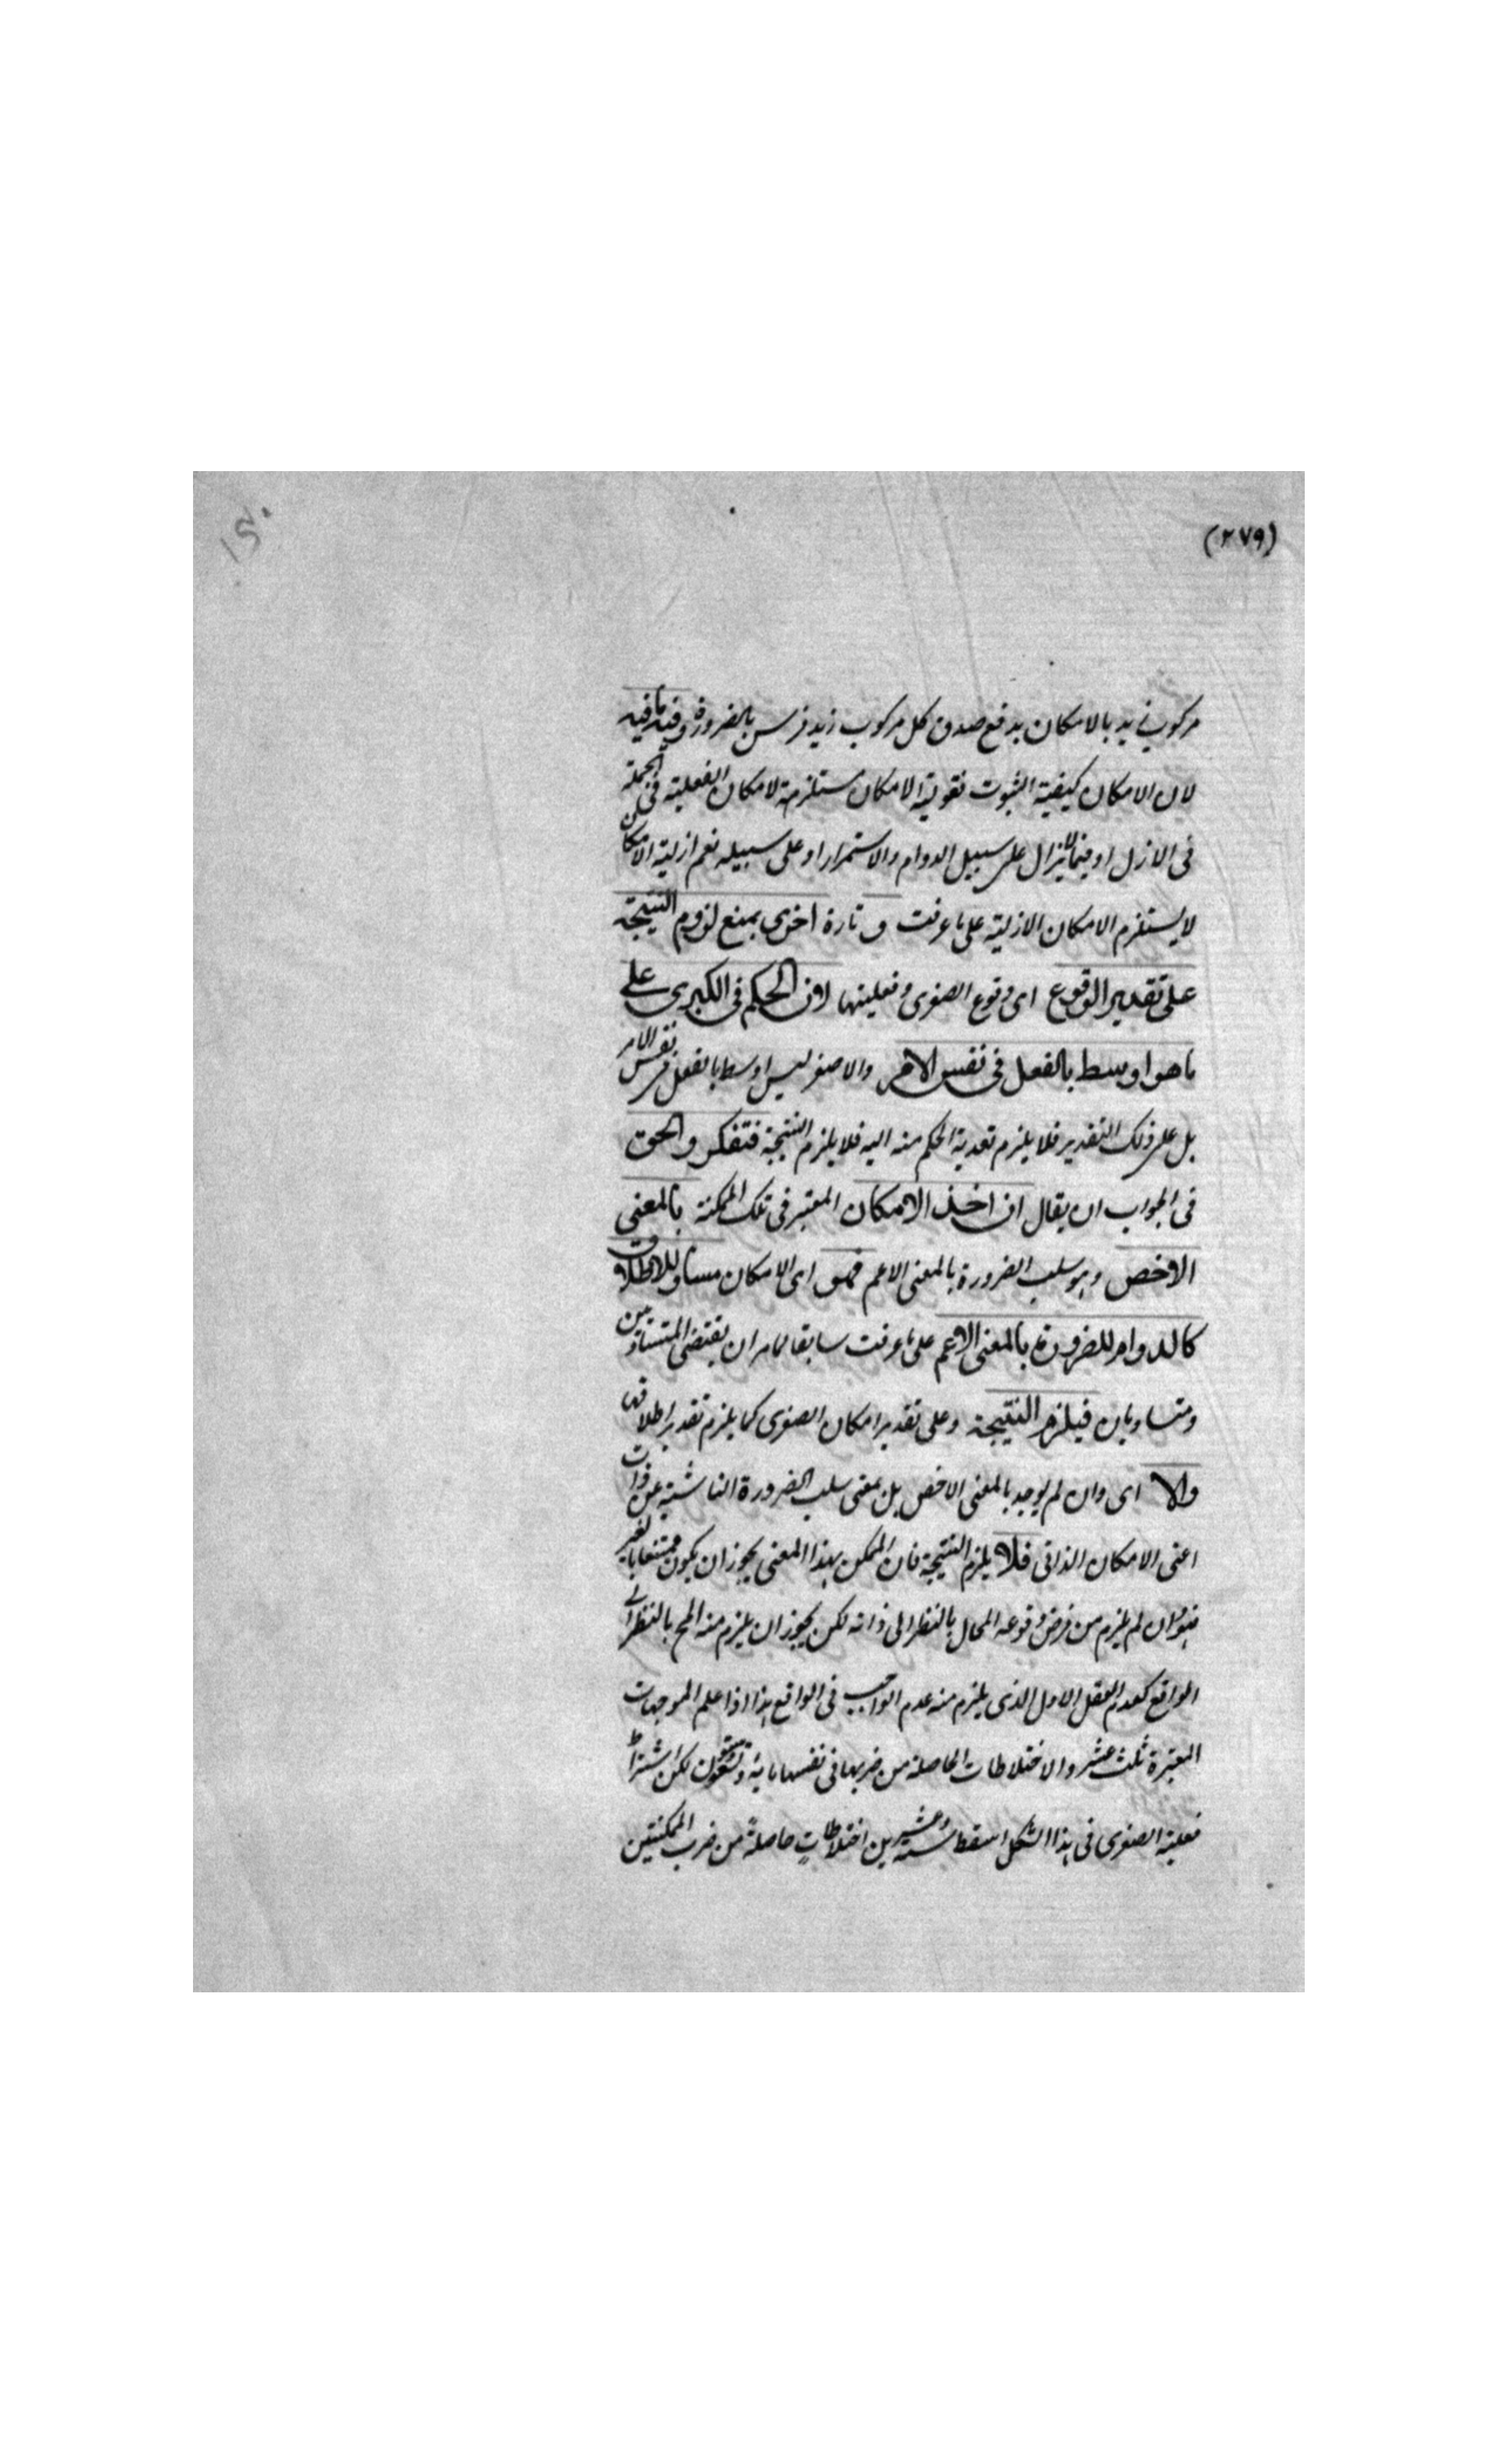 (٢٧٩)
مركوب زيد بالامكان يدفع صدق كل مركوب زيد فرس بالضرورة وفيه ما فيه
لان الامكان كيفية الثبوت فقوتية الامكان مستلزمة لامكان الفعلية فى الجملة
فى الازل او فيما لا يزال على سبيل الدوام والاستمرار او على سبيله نعم ازلية الامكان
لا يستلزم الامكان الازلية على ما عرفت و تارة اخرى بمنع لزوم النتيجة
على تقدير الوقوع اى وقوع الصغرى وفعليتها لان الحكم فى الكبرى على
ما هو اوسط بالفعل فى نفس الامر والاصغر ليس اوسط بالفعل فى نفس الامر
بل على ذلك التقدير فلا يلزم تعدية الحكم منه اليه فلا يلزم النتيجة فتفكر والحق
فى الجواب ان يقال ان اخذ الامكان المعتبر فى تلك الممكنة بالمعنى
الاخص وهو سلب الضرورة بالمعنى الاعم فهو اى الامكان مساو للاطلاق
كالدوام للضرورة بالمعنى الاعم على ما عرفت سابقا لما مر ان نقيضى المتساويين
متساويان فيلزم النتيجة وعلى تقدير امكان الصغرى كما يلزم تقدير اطلاقها
والا اى وان لم يوجد بالمعنى الاخص بل بمعنى سلب الضرورة الناشئية عن ذات
اعنى الامكان الذاتى فلا يلزم النتيجة فان الممكن بهذا المعنى يجوز ان يكون ممتنعا بالغير
فهو وان لم يلزم من فرض وقوعه المحال بالنظر الى ذاته لكن يجوز ان يلزم منه المح بالنظر الى
الواقع كعدم العقل الاول الذى يلزم منه عدم الواجب فى الواقع هذا اذا علم الموجهات
المعتبرة ثلث عشر والاختلاطات الحاصلة من ضربها فى نفسها مائة وتسعة وستون لكن اشتراط
فعلية الصغرى فى هذا الشكل اسقط ستة وعشرين اختلاطاتٍ حاصلةً من ضرب الممكنتين